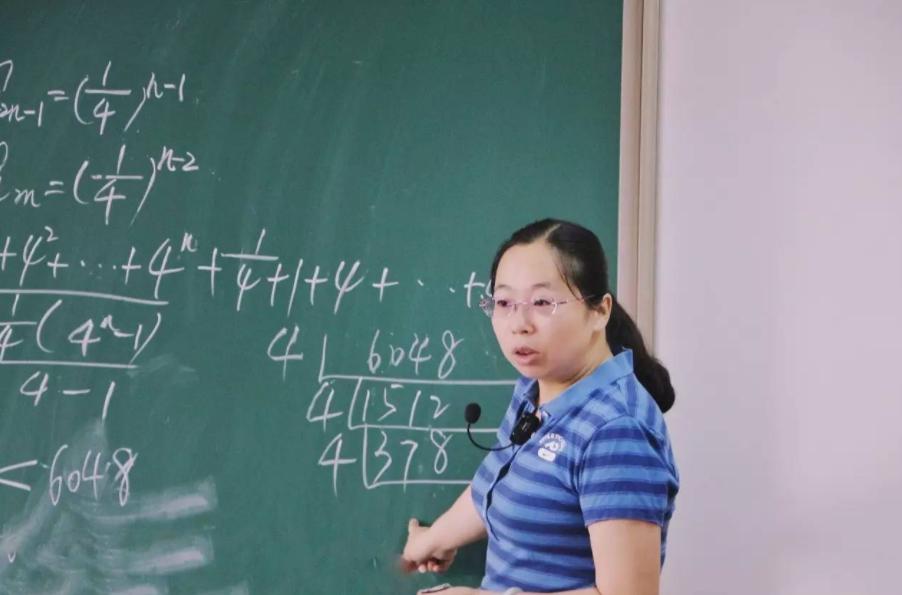 2n-1=(1/4)^n-1
m=(-1/4)^n-2
+4^2+...+4^n+1/4+1+4+...+
1/4(4^n-1)
4-1
<6048
4 6048
4 1512
4 378